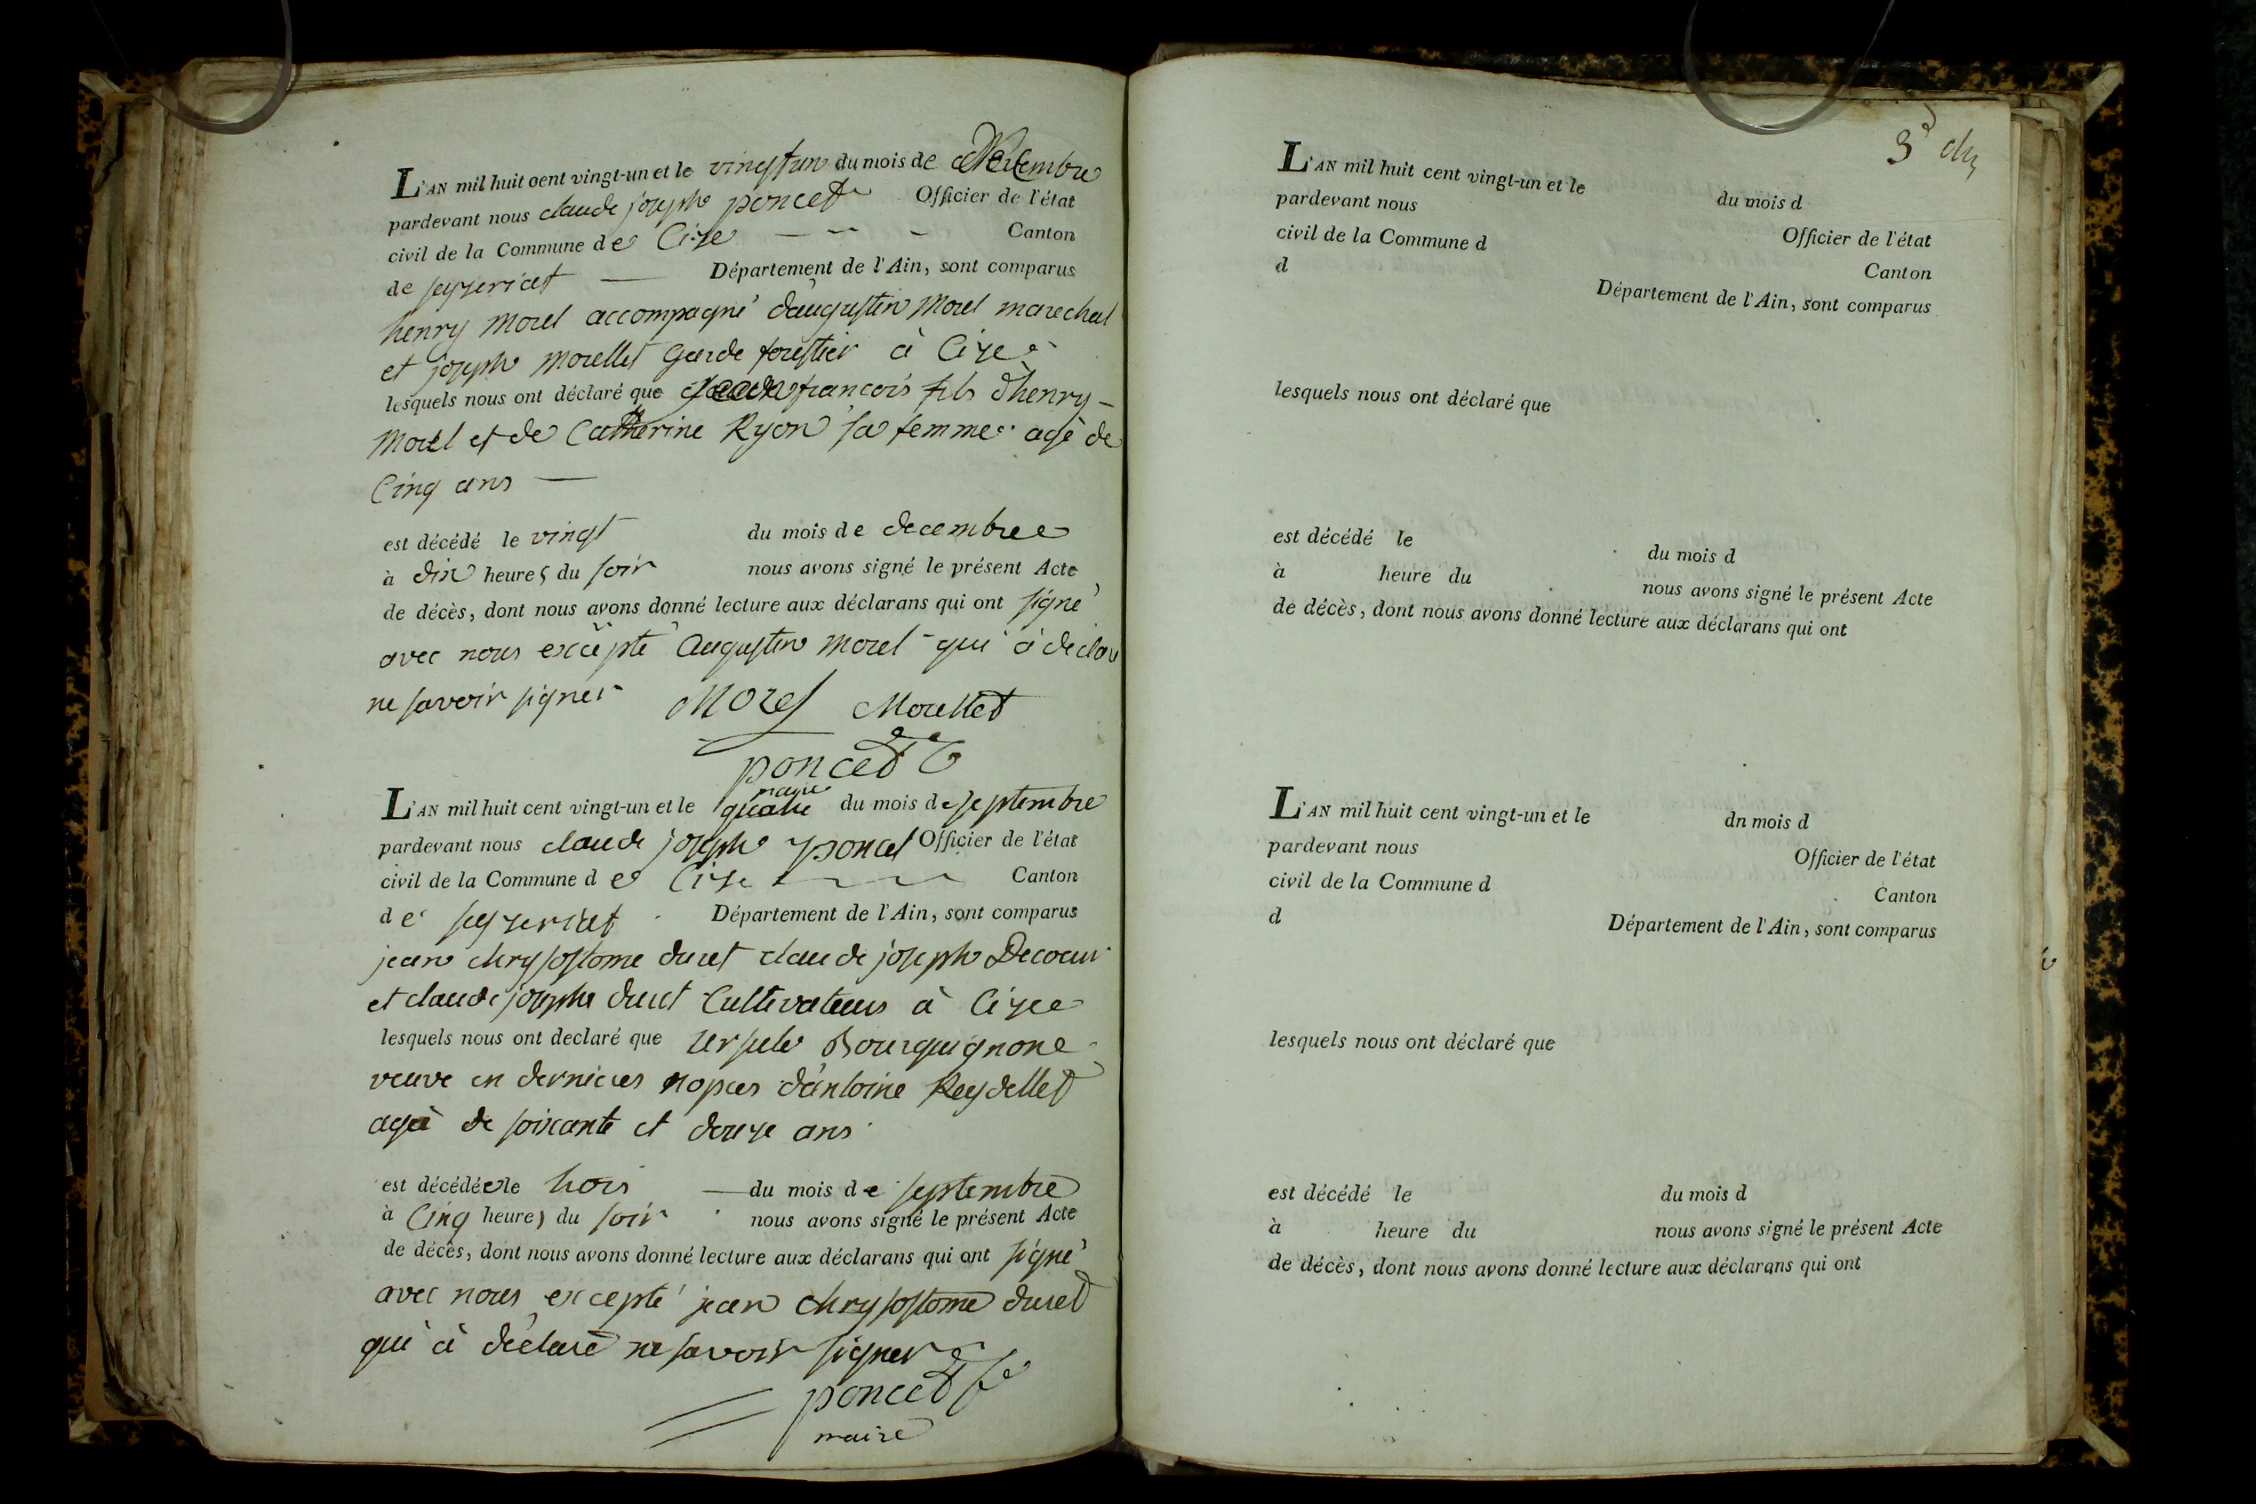 L'AN mil huit cent vingt-un et le vingtun du mois de decembre
pardevant nous claude joseph poncet Officier de l'état
civil de la Commune de Cize Canton
de seyzeriat Département de l'Ain, sont comparus
henry morel accompagné d'augustin morel marechal
et joseph morellet garde forestier à Cize
lesquels nous ont déclaré que francois fils d'henry
morel et de Catherine Ryon sa femme agé de
Cinq ans
est décédé le vingt du mois de decembre
à dix heures du soir nous avons signé le présent Acte
de décès, dont nous avons donné lecture aux déclarans qui ont signé
avec nous excepté augustin morel qui à declaré
ne savoir signer Morel Morellet
poncet
maire
L'AN mil huit cent vingt-un et le quatre du mois de septembre
pardevant nous claude joseph poncet Officier de l'état
civil de la Commune de Cize Canton
de seyzeriat Département de l'Ain, sont comparus
jean chrysostome duret claude joseph Decoeur
et claude joseph duret Cultivateurs à Cize
lesquels nous ont declaré que ursule Bourguignone
veuve en dernieres nopces d'antoine Reydellet
agé de soixante et douze ans
est décédée le trois du mois de septembre
à Cinq heures du soir nous avons signé le présent Acte
de décès, dont nous avons donné lecture aux déclarans qui ont signé
avec nous excepté jean chrysostome duret
qui à déclaré ne savoir signer
poncet
maire
L'AN mil huit cent vingt-un et le du mois d
pardevant nous Officier de l'état
civil de la Commune d Canton
d Département de l'Ain, sont comparus
lesquels nous ont déclaré que
est décédé le du mois d
à heure du nous avons signé le présent Acte
de décès, dont nous avons donné lecture aux déclarans qui ont
L'AN mil huit cent vingt-un et le dn mois d
pardevant nous Officier de l'état
civil de la Commune d Canton
d Département de l'Ain, sont comparus
lesquels nous ont déclaré que
est décédé le du mois d
à heure du nous avons signé le présent Acte
de décès, dont nous avons donné lecture aux déclarans qui ont